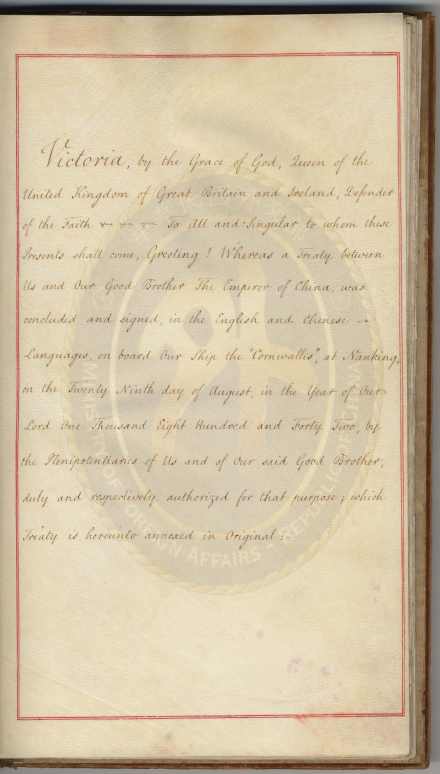 Victoria, by the Grace of God, Queen of the
United Kingdom of Great Britain and Ireland, Defender
of the Faith ~ ~ ~ To All and Singular to whom these
Presents shall come, Greeting! Whereas a Treaty between
Us and Our Good Brother The Emperor of China, was
concluded and signed, in the English and Chinese ~
Languages, on board Our Ship the "Cornwallis", at Nanking,
on the Twenty Ninth day of August, in the Year of Our
Lord One Thousand Eight Hundred and Forty Two, by
the Plenipotentiaries of Us and of Our said Good Brother,
duly and respectively authorized for that purpose; which
Treaty is hereunto annexed in Original:
MINISTRY OF FOREIGN AFFAIRS REPUBLIC OF CHINA